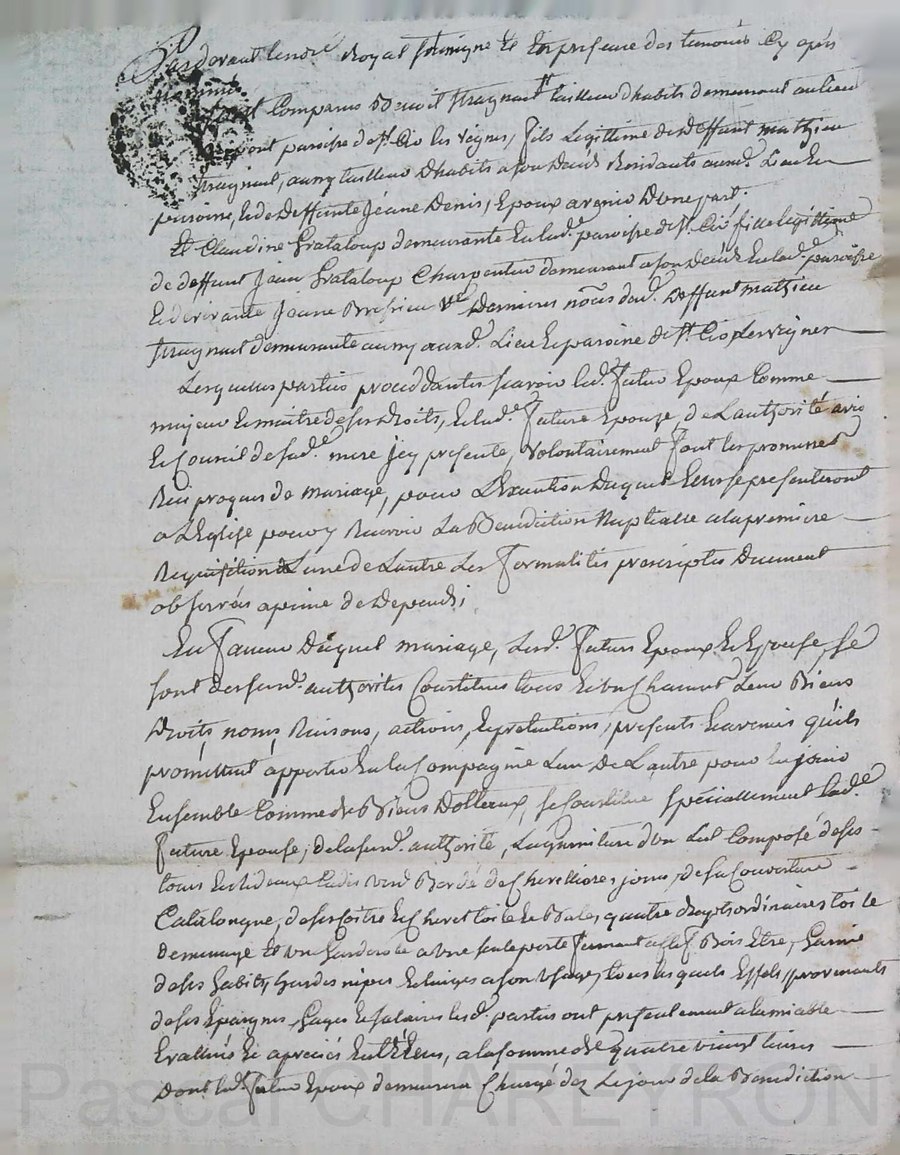 Pardevant le no.re Royal soussigné et En presence des temoins Cy apres
nommés
sont Comparus Benoit fragnait tailleur dhabits demeurant au lieu
pont paroisse de st. Cir les vignes, fils Legittime de deffunt mathieu
fragnait, aussy tailleur Dhabits a son Deceds Residants aud. Lieu Et
paroisse, et de Deffunte jeane Denis, Epoux avenir Dune part.
Et Claudine Grataloup demeurante En lad.e paroisse de st. Cir fille legittime
de deffunt jean Grataloup Charpentier demeurant a son Deceds En lad.e paroisse
Et de vivante jeane Bressieu v.e Dernieres noces dud. Deffunt mathieu
fragnait demeurante aussy aud. Lieu Et paroisse de st. Cir les vignes
Lesquelles parties procedantes scavoir led. futur Epoux Comme
majeur Et maitre de ses Droits, Et lad.e future Epouse de Lauthorité avis
Et Conseil de sad.e mere jcy presente, volontairement font les promesses
Reciproques de mariage, pour LExecution Duquel Ils se presenteront
a LEglise pour y Recevoir La Benediction Nuptialle a la premiere
Requisition de Lune de Lautre Les formalités prescriptes Duement
observées a peine de Depends;
En faveur Duquel mariage, Lesd. futurs Epoux Et Epouse, se
sont de sesurd. authorités Constitués tous Et un Chacuns Leurs Biens
Droits, noms, Raisons, actions, Et pretentions, presents Et avenir qu'ils
promettent apporter En la Compagnie Lun De Lautre pour En jouir
Ensemble Comme de Biens Dotteaux, se Constitue specialement lad.e
future Epouse, de la surd. authorité, La garniture dun Lit Composé de ses
tours Et Rideaux Cadis verd Bordé de jaune, de sa Couverture
Catalongne, de ses Coitre Et Chevet toile Et Bales, quatre draps ordinaires toile
de menage Et une Garderobe a une seule porte fermant a clef Bois Etre, Garnie
de ses habits, hardes nipes Et linges a son usage, tous lesquels Effets, provenants
de ses Epargnes Gages Et salaires lesd. parties ont presentement a lamiable
Evallués Et apreciés Entre Eux, a la somme de quatre vingt livres
Dont led. futur Epoux demeurera Chargé des Le jour de la Benediction
Pascal CHAREYRON